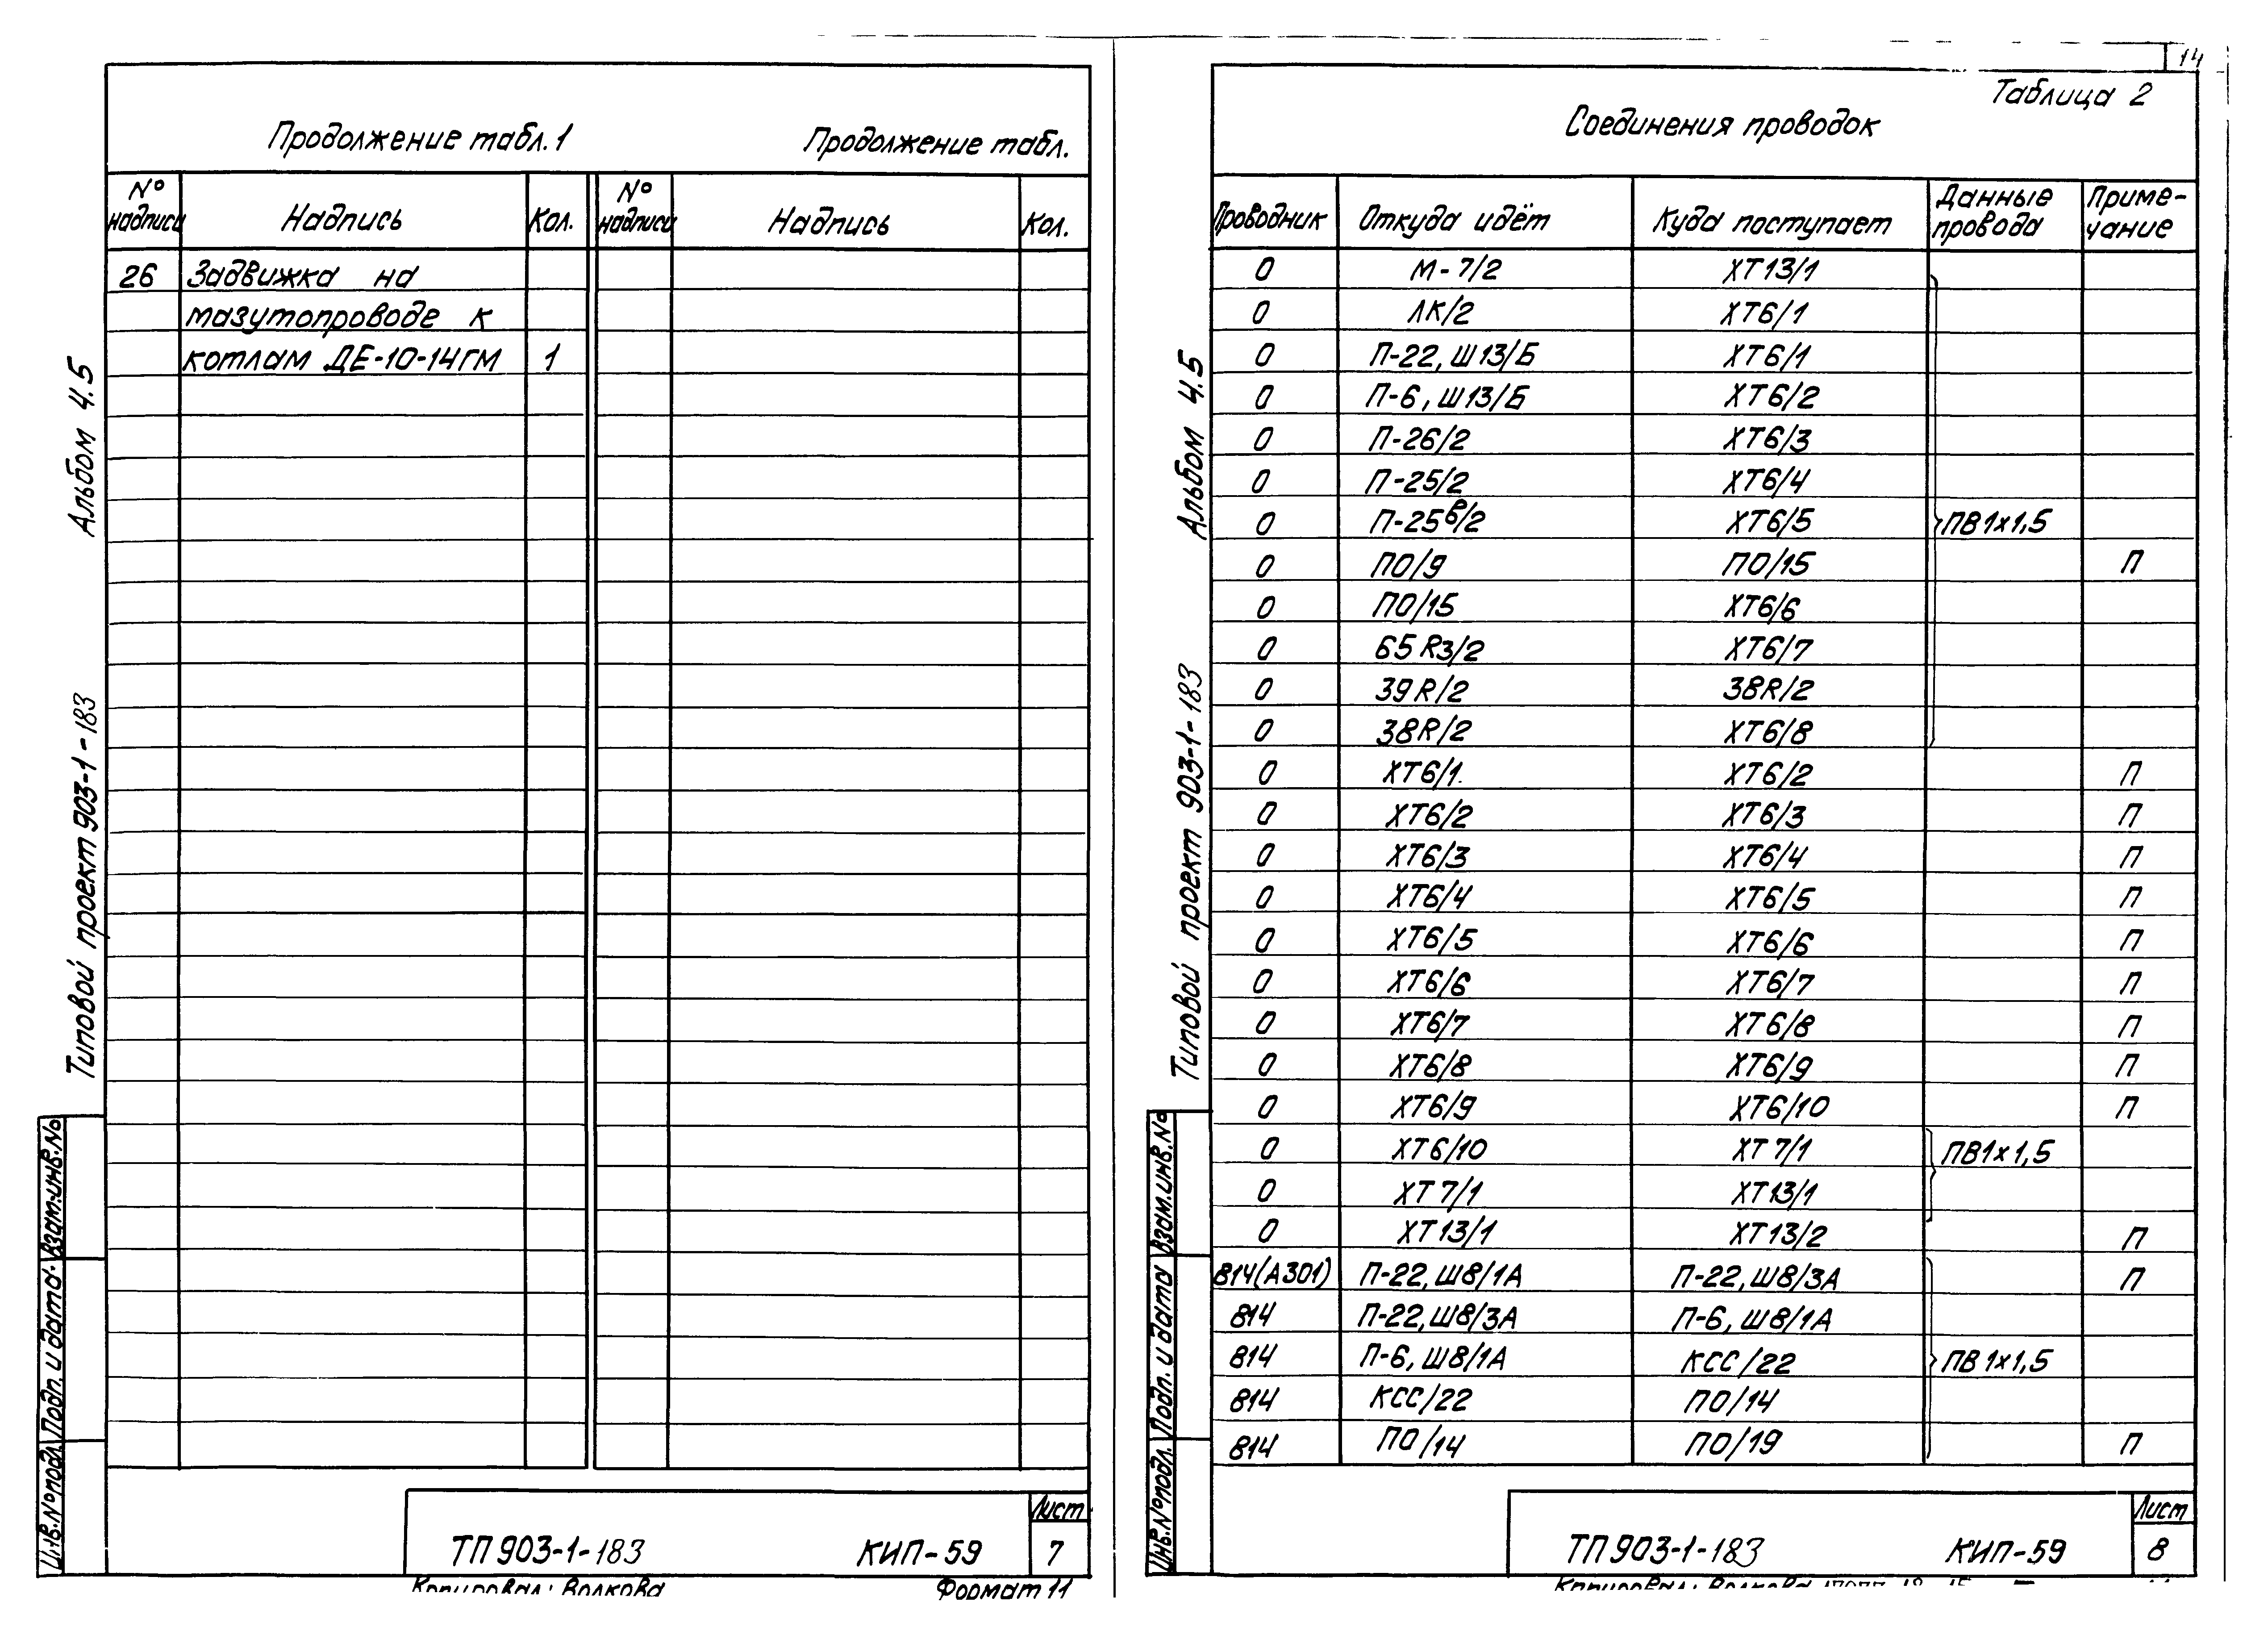 Продолжение табл. 1
Продолжение табл.
№ надписи Надпись Кол. № надписи Надпись Кол.
26 Задвижка на
мазутопроводе к
котлам ДЕ-10-14ГМ 1
Альбом 4.5
Типовой проект 903-1-183
Взам.инв.№
Подп. и дата
Инв.№подл.
ТП 903-1-183 КИП-59
Лист
7
Копировал: Волкова Формат 11
14
Таблица 2
Соединения проводок
Проводник Откуда идёт Куда поступает Данные провода Приме-чание
0 М-7/2 ХТ13/1
0 ЛК/2 ХТ6/1
0 П-22, Ш13/Б ХТ6/1
0 П-6, Ш13/Б ХТ6/2
0 П-26/2 ХТ6/3
0 П-25/2 ХТ6/4
0 П-25в/2 ХТ6/5 ПВ1х1,5
0 ПО/9 ПО/15 П
0 ПО/15 ХТ6/6
0 65R3/2 ХТ6/7
0 39R/2 38R/2
0 38R/2 ХТ6/8
0 ХТ6/1 ХТ6/2 П
0 ХТ6/2 ХТ6/3 П
0 ХТ6/3 ХТ6/4 П
0 ХТ6/4 ХТ6/5 П
0 ХТ6/5 ХТ6/6 П
0 ХТ6/6 ХТ6/7 П
0 ХТ6/7 ХТ6/8 П
0 ХТ6/8 ХТ6/9 П
0 ХТ6/9 ХТ6/10 П
0 ХТ6/10 ХТ7/1 ПВ1х1,5
0 ХТ7/1 ХТ13/1
0 ХТ13/1 ХТ13/2 П
814(А301) П-22,Ш8/1А П-22,Ш8/3А П
814 П-22,Ш8/3А П-6, Ш8/1А
814 П-6, Ш8/1А КСС/22 ПВ1х1,5
814 КСС/22 ПО/14
814 ПО/14 ПО/19 П
Альбом 4.5
Типовой проект 903-1-183
Взам.инв.№
Подп. и дата
Инв.№подл.
ТП 903-1-183 КИП-59
Лист
8
Копировал: Волкова